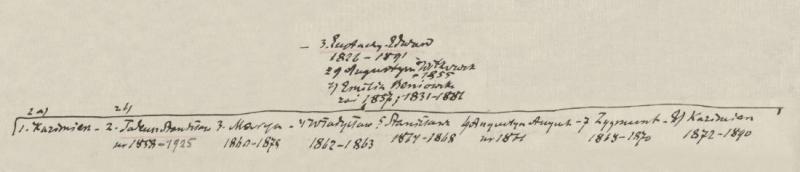 – 3. Eustachy Edward
1826 – 1891
Augustyna
1855
Emilia Beniowska
1857, 1831–1886
za) zb)
1. Kazimierz – 2. Tadeusz Stanisław 3. Marya – 4 Władysław 5 Stanisława 6) Augustyn August – 7 Zygmunt – 8) Kazimierz
ur 1858–1925 1860–1879 1862–1863 1864–1868 ur 1871 1868–1870 1872–1890